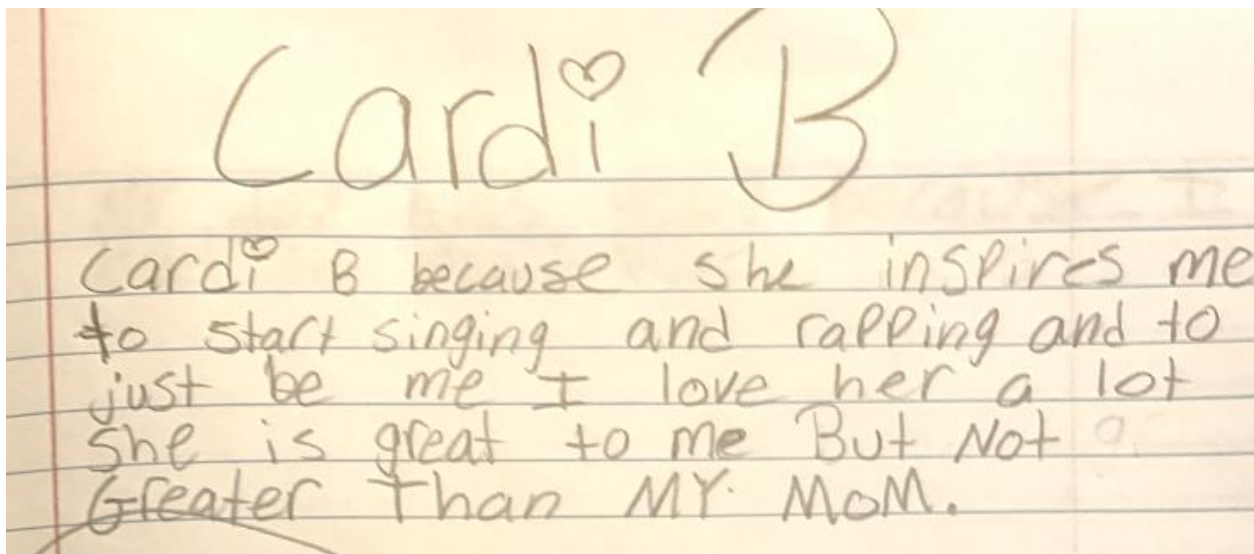 Cardi B
Cardi B because she inspires me
to start singing and rapping and to
just be me I love her a lot
She is great to me But Not
Greater Than MY MoM.